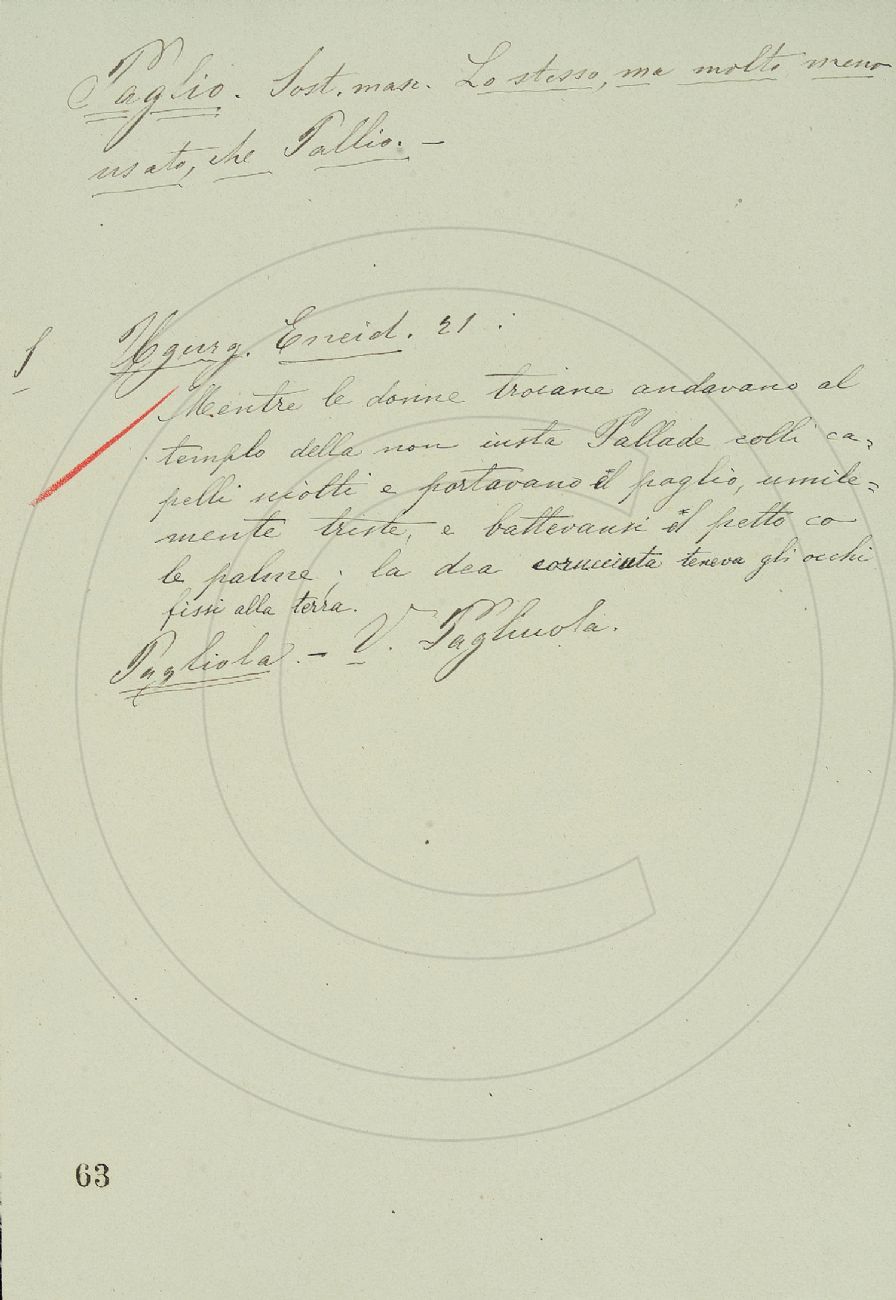 Paglio. Sost. masc. Lo stesso, ma molto meno
usato, che Pallio. –
S Ugurg. Eneid. 21:
Mentre le donne troiane andavano al
templo della non iusta Pallade colli ca-
pelli sciolti e portavano il paglio, umile-
mente triste, e battevansi il petto co
le palme; la dea corrucciata teneva gli occhi
fissi alla terra.
Pagliola. – V. Pagliuola.
63